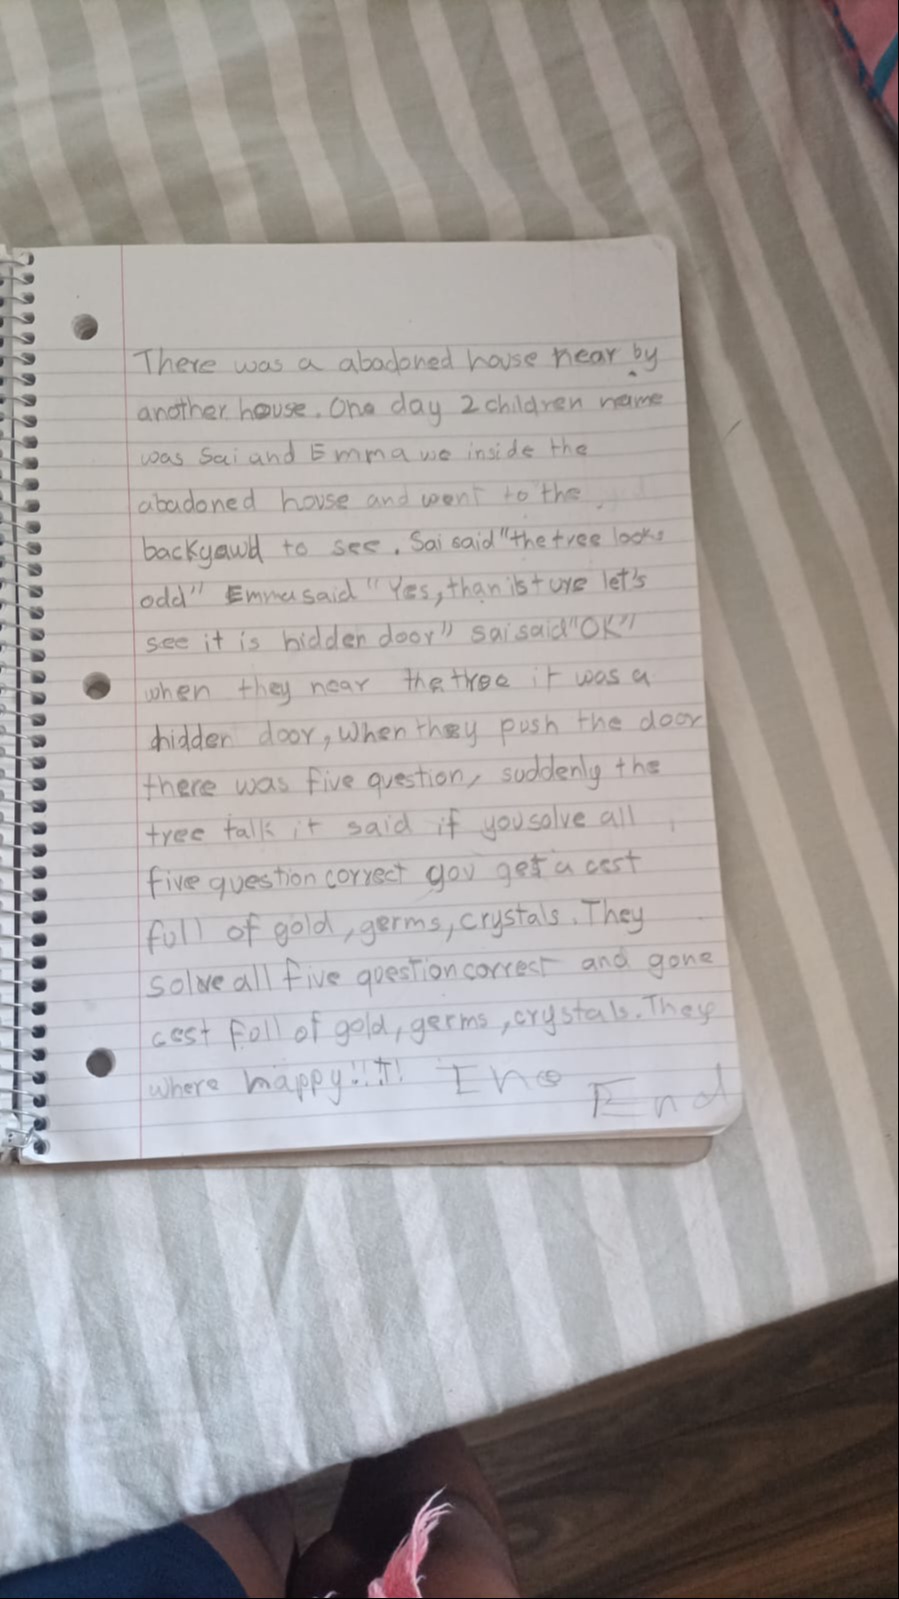 There was a abadoned house near by
another house. One day 2 children name
was Sai and Emma we inside the
abadoned house and went to the
backyawd to see. Sai said "the tree looks
odd" Emma said "Yes, than is ture let's
see it is hidden door" sai said "OK"
when they near the tree it was a
hidden door, when they push the door
there was five question, suddenly the
tree talk it said if you solve all
five question correct you get a cest
full of gold, germs, crystals. They
solve all five question correct and gone
cest full of gold, germs, crystals. They
where happy!!!! The
End